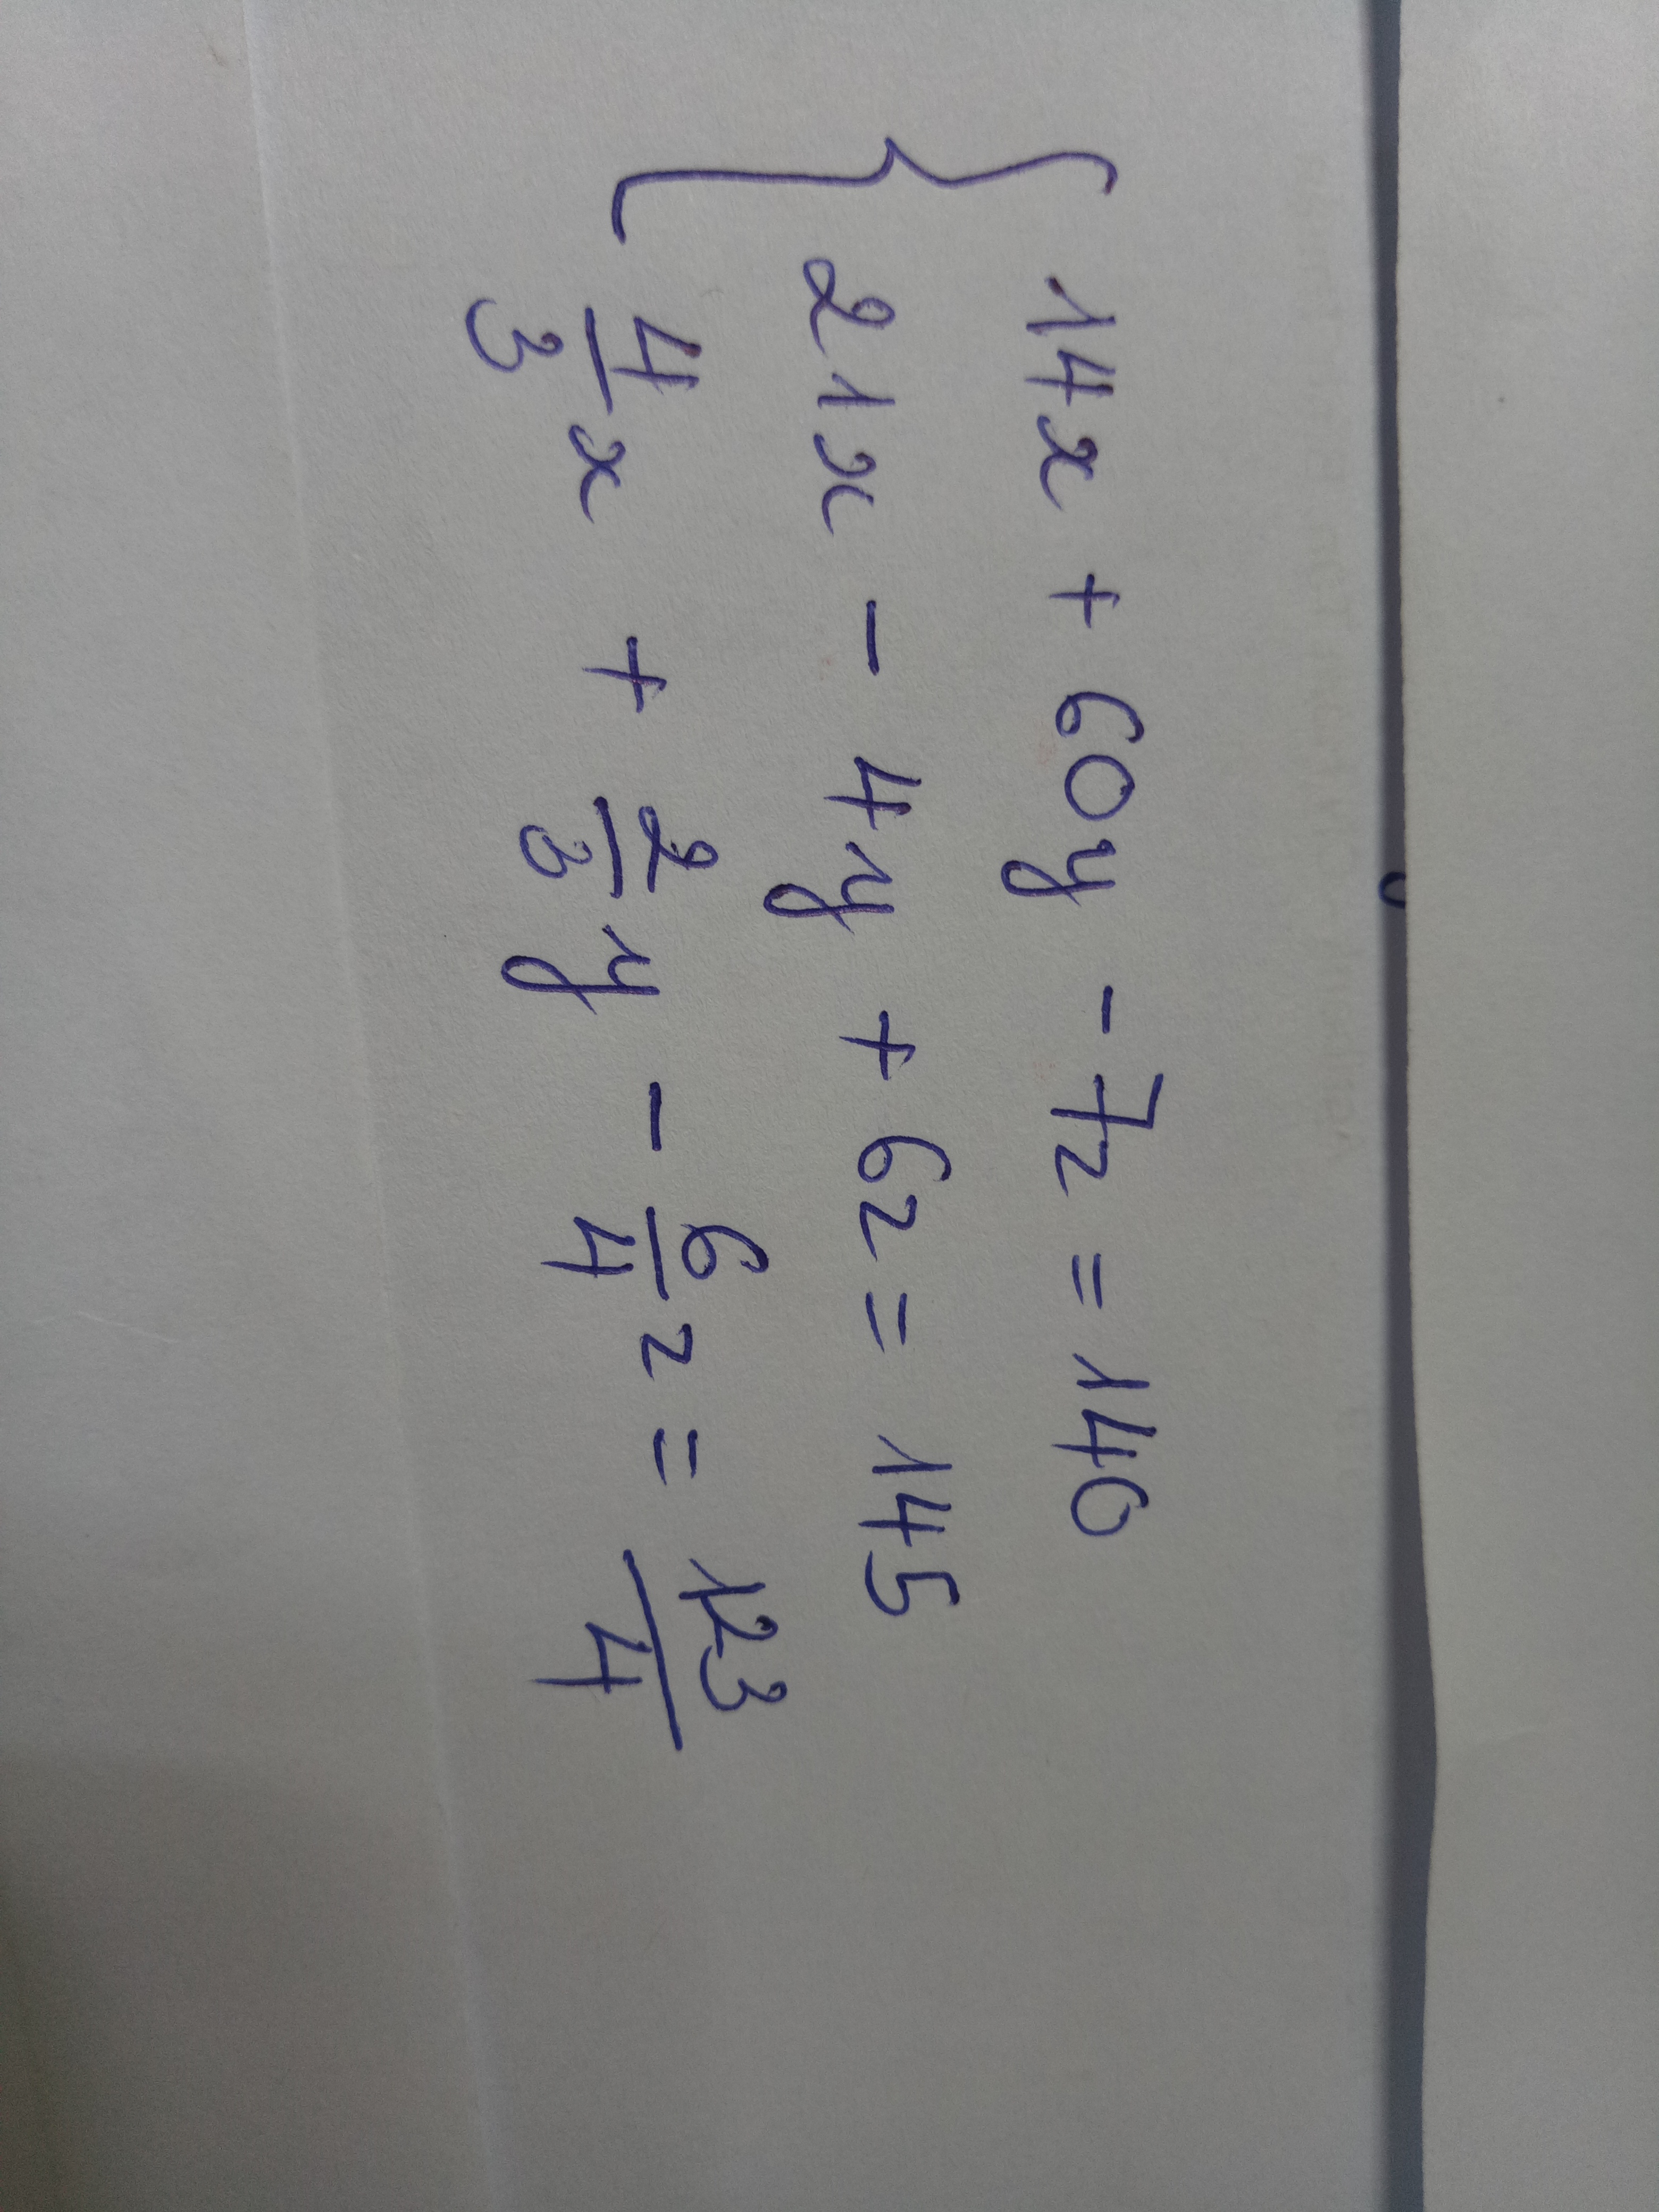 14x + 60y - 7z = 140
21x - 4y + 6z = 145
4/3 x + 2/3 y - 6/4 z = 123/4